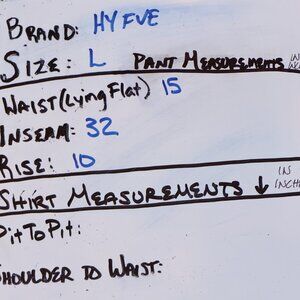 BRAND: HYFVE
SIZE: L PANT MEASUREMENTS
WAIST (Lying Flat) 15
INSEAM: 32
RISE: 10
SHIRT MEASUREMENTS ↓ IN INCHE
PitToPit:
SHOULDER TO WAIST: